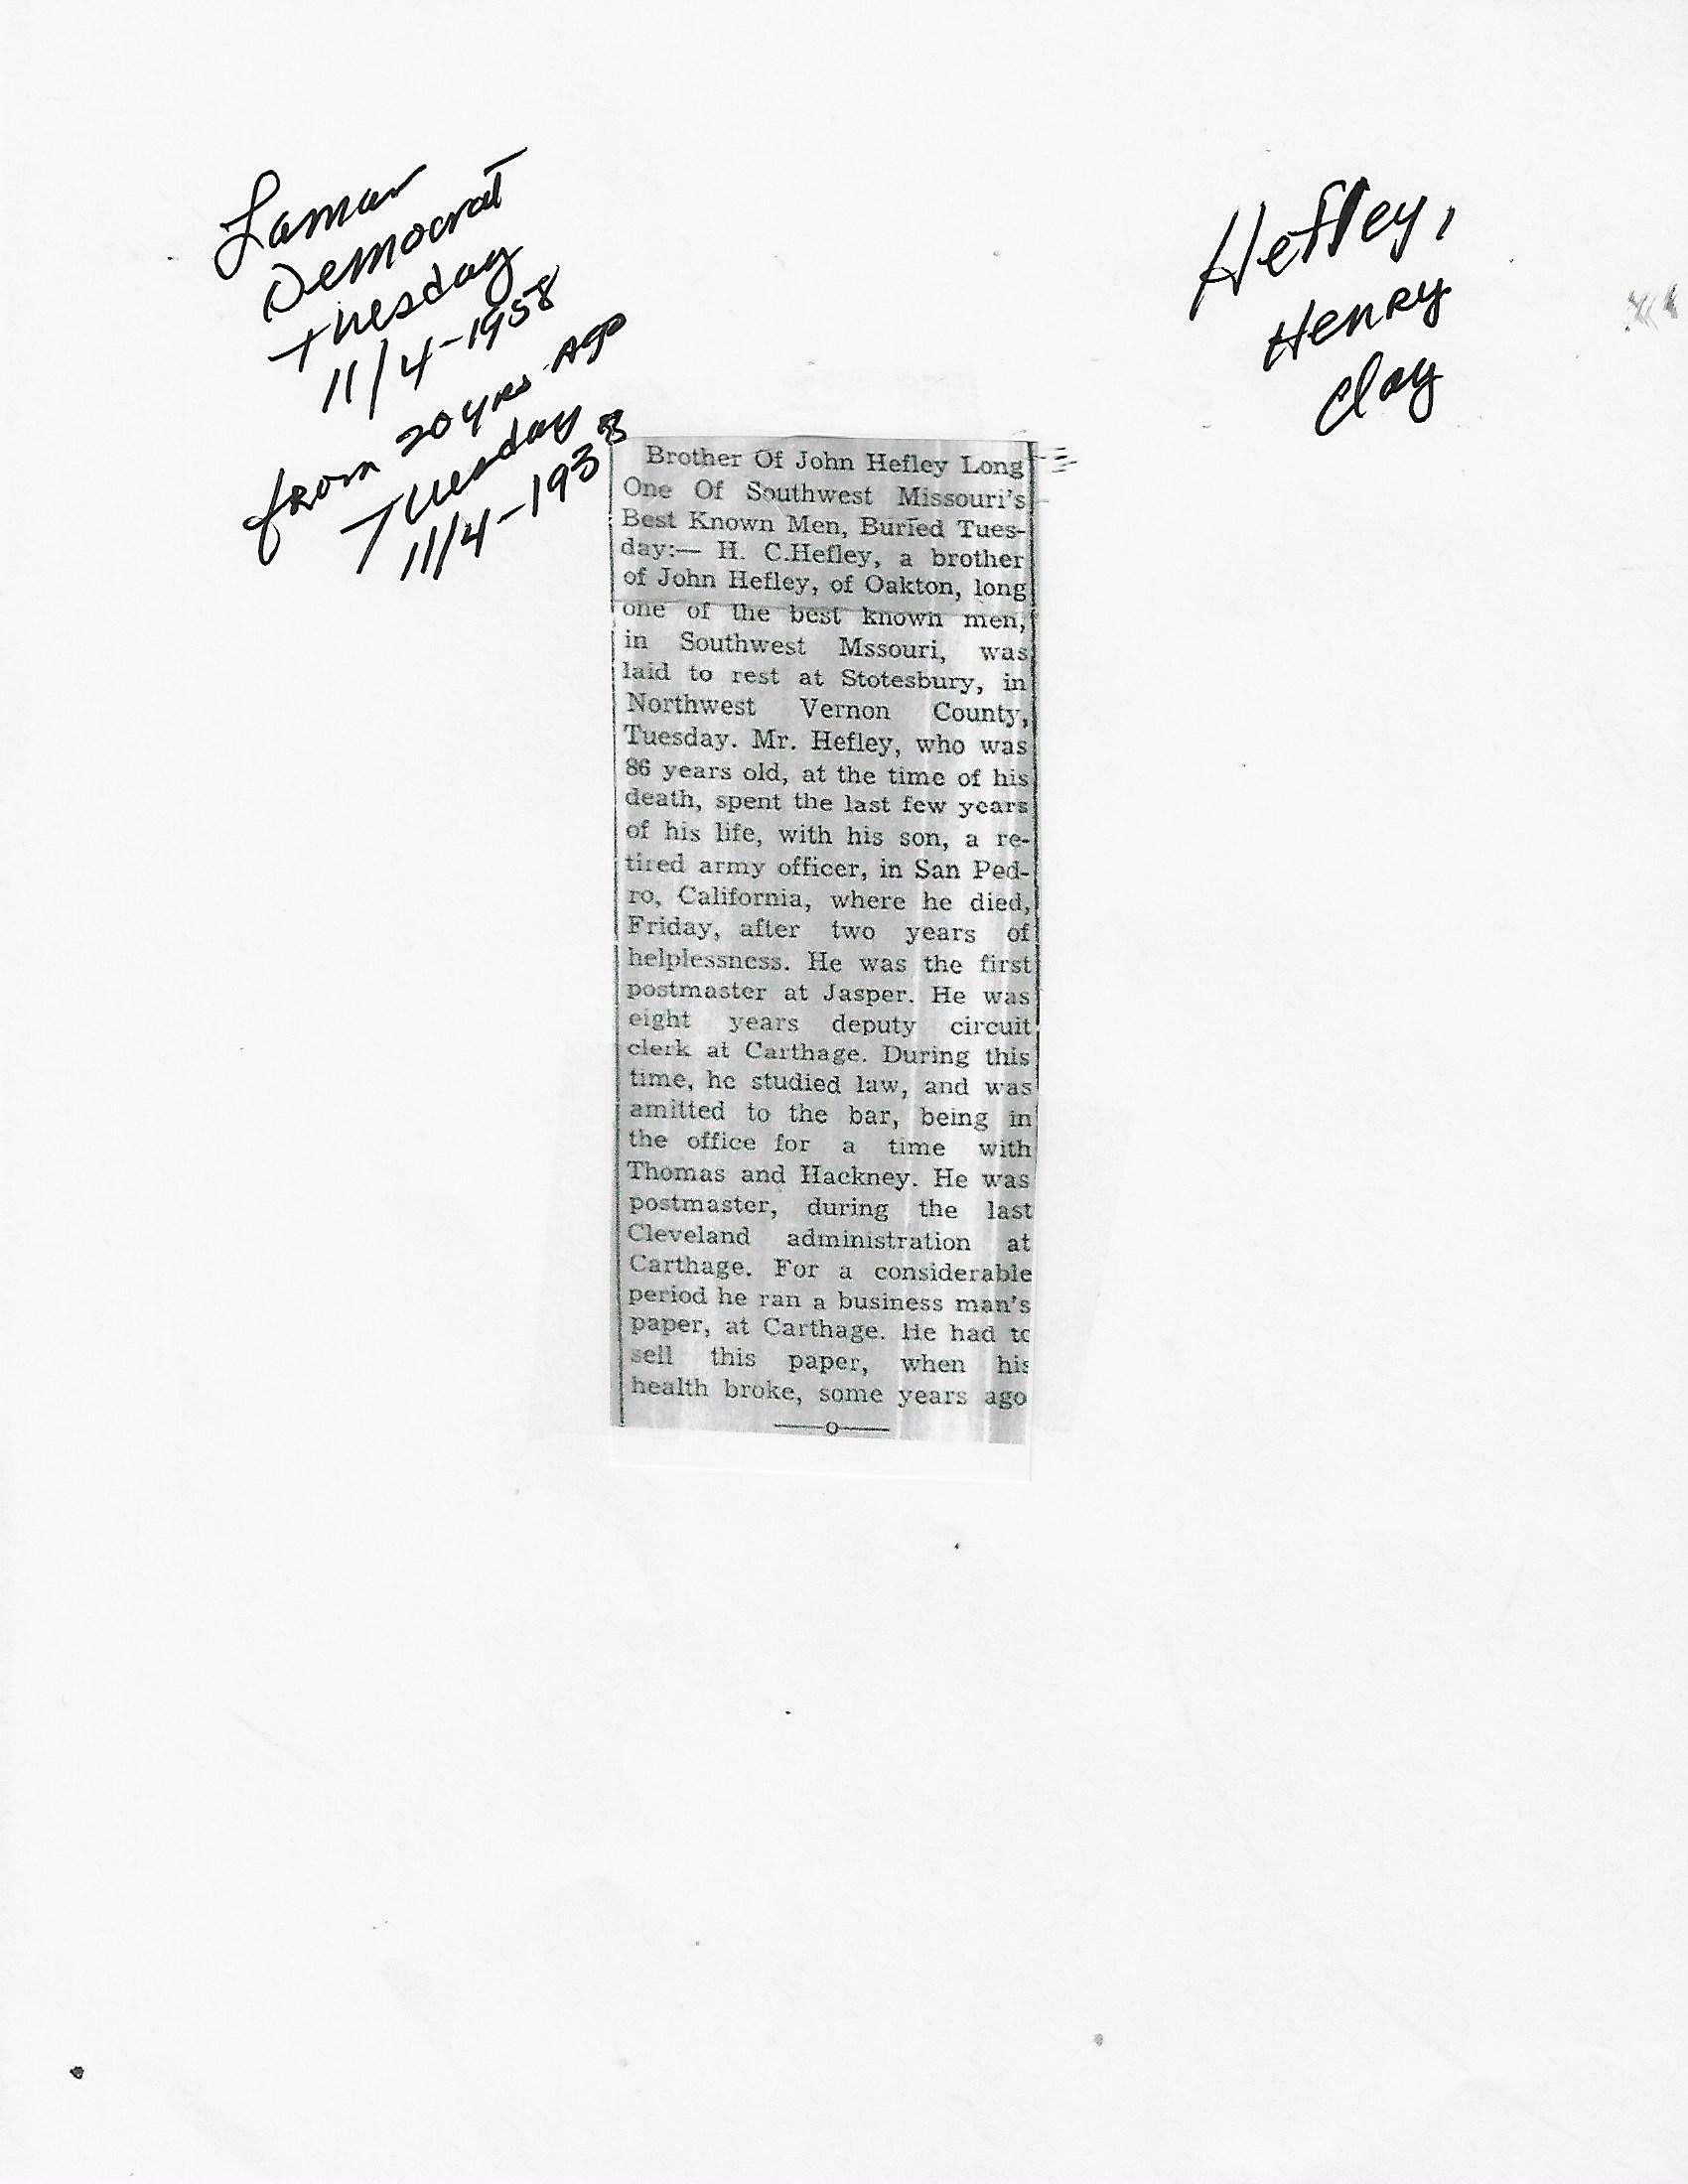 Lamar
Democrat
Tuesday
11/4-1958
from 20 yrs ago
Tuesday
11/4-1938
Hefley,
Henry
Clay
Brother Of John Hefley Long
One Of Southwest Missouri's
Best Known Men, Buried Tues-
day:— H. C.Hefley, a brother
of John Hefley, of Oakton, long
one of the best known men,
in Southwest Mssouri, was
laid to rest at Stotesbury, in
Northwest Vernon County,
Tuesday. Mr. Hefley, who was
86 years old, at the time of his
death, spent the last few years
of his life, with his son, a re-
tired army officer, in San Ped-
ro, California, where he died,
Friday, after two years of
helplessness. He was the first
postmaster at Jasper. He was
eight years deputy circuit
clerk at Carthage. During this
time, he studied law, and was
amitted to the bar, being in
the office for a time with
Thomas and Hackney. He was
postmaster, during the last
Cleveland administration at
Carthage. For a considerable
period he ran a business man's
paper, at Carthage. He had to
sell this paper, when his
health broke, some years ago
——o——